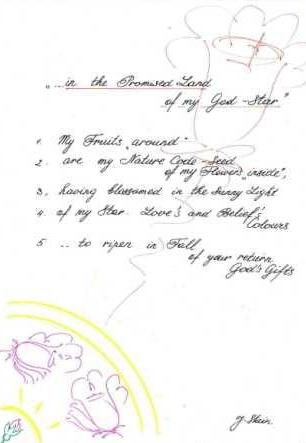 "...in the Promised Land
of my God-Star"
1. My Fruits "around"
2. are my Nature Code-Seed
of my Flowers "inside",
3. having blossomed in the Sunny Light
4. of my Star. Love's and Belief's
Colours
5 .. to ripen in Fall
of your return
God's Gifts
y. Stein.